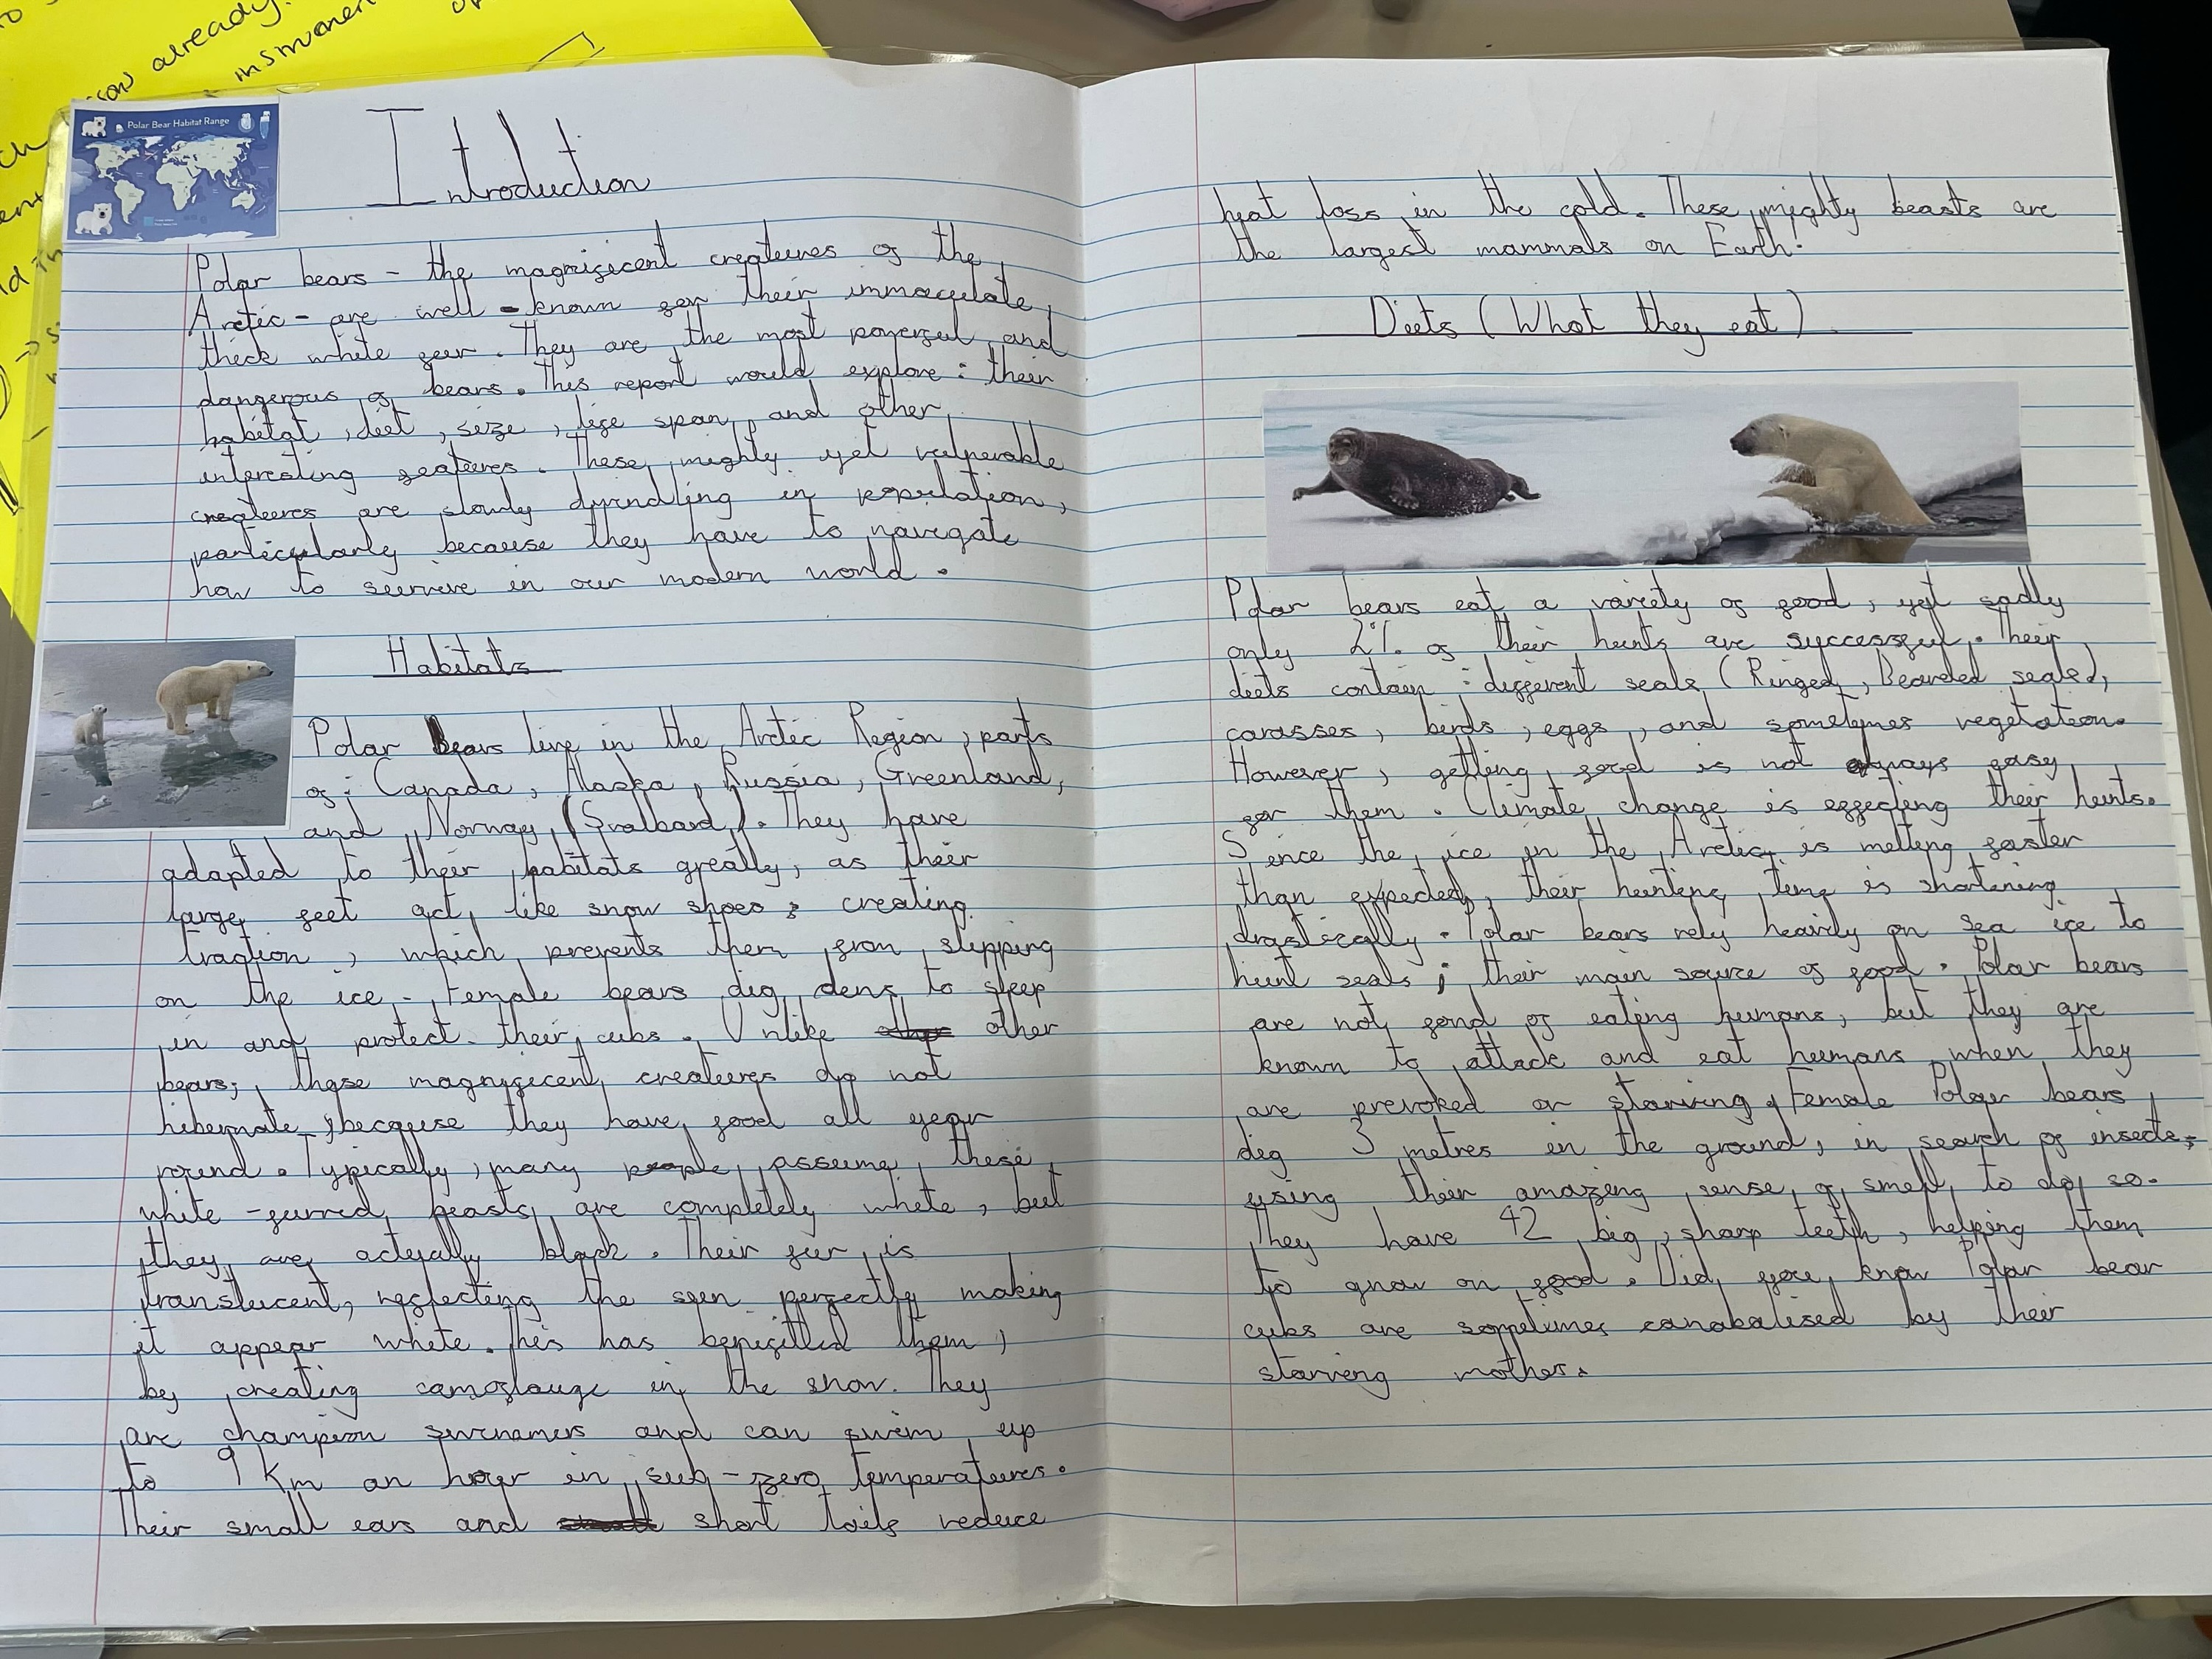 son already.
instrument
Polar Bear Habitat Range
Introduction
Polar bears - the magnificent creatures of the
Arctic - are well - known for their immaculate,
thick white fur. They are the most powerful and
dangerous of bears. This report would explore : their
habitat, diet, size, life span, and other
interesting features. These mighty yet vulnerable
creatures are slowly dwindling in population,
particularly because they have to navigate
how to survive in our modern world.
Habitats
Polar Bears live in the Arctic Region, parts
of: Canada, Alaska, Russia, Greenland,
and Norway (Svalbard). They have
adapted to their habitats greatly, as their
large feet act like snow shoes; creating
traction, which prevents them from slipping
on the ice. Female bears dig dens to sleep
in and protect their cubs. Unlike other
bears, these magnificent creatures do not
hibernate, because they have food all year
round. Typically, many people assume these
white - furred beasts are completely white, but
they are actually black. Their fur is
translucent, reflecting the sun perfectly making
it appear white. This has benifitted them,
by creating camoflauge in the snow. They
are champion swimmers and can swim up
to 9 km an hour in sub - zero temperatures.
Their small ears and short tails reduce
heat loss in the cold. These mighty beasts are
the largest mammals on Earth.
Diets (What they eat)
Polar bears eat a variety of food, yet sadly
only 2% of their hunts are successful. Their
diets contain : different seals (Ringed, Bearded seals),
carasses, birds, eggs, and sometimes vegetation.
However, getting food is not always easy
for them. Climate change is effecting their hunts.
Since the ice in the Arctic is melting faster
than expected, their hunting time is shortening
drastically. Polar bears rely heavily on sea ice to
hunt seals; their main source of food. Polar bears
are not fond of eating humans, but they are
known to attack and eat humans when they
are prevoked or starving. Female Polar bears
dig 3 metres in the ground, in search of insects,
using their amazing sense of smell to do so.
They have 42 big, sharp teeth, helping them
to gnaw on food. Did you know Polar bear
cubs are sometimes canabalised by their
starving mothers.